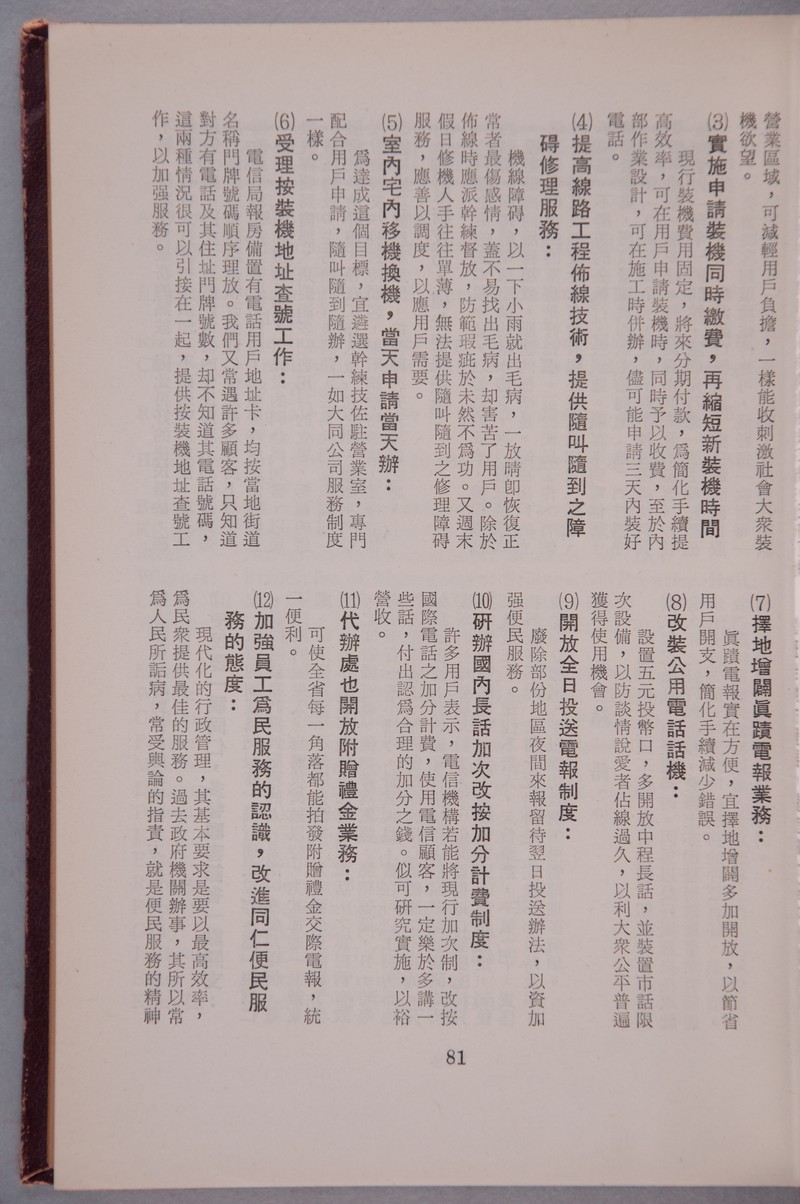 營業區域，可減輕用戶負擔，一樣能收刺激社會大衆裝
機欲望。
⑶實施申請裝機同時繳費，再縮短新裝機時間
現行裝機費用固定，將來分期付款，爲簡化手續提
高效率，可在用戶申請裝機時，同時予以收費，至於內
部作業設計，可在施工時併辦，儘可能申請三天內裝好
電話。
⑷提高線路工程佈線技術，提供隨叫隨到之障
碍修理服務：
機線障碍，以一下小雨就出毛病，一放晴卽恢復正
常者最傷感情，蓋不易找出毛病，却害苦了用戶。除於
佈線時應派幹練督放，防範瑕疵於未然不爲功。又週末
假日修機人手往往單薄，無法提供隨叫隨到之修理障碍
服務，應善以調度，以應用戶需要。
⑸室內宅內移機換機，當天申請當天辦：
爲達成這個目標，宜遴選幹練技佐駐營業室，專門
配合用戶申請，隨叫隨到隨辦，一如大同公司服務制度
一樣。
⑹受理按裝機地址查號工作：
電信局報房備置有電話用戶地址卡，均按當地街道
名稱門牌號碼順序理放。我們又常遇許多顧客，只知道
對方有電話及其住址門牌號數，却不知道其電話號碼，
這兩種情況很可以引接在一起，提供按裝機地址查號工
作，以加强服務。
⑺擇地增闢眞蹟電報業務：
眞蹟電報實在方便，宜擇地增闢多加開放，以節省
用戶開支，簡化手續減少錯誤。
⑻改裝公用電話話機：
設置五元投幣口，多開放中程長話，並裝置市話限
次設備，以防談情說愛者佔線過久，以利大衆公平普遍
獲得使用機會。
⑼開放全日投送電報制度：
廢除部份地區夜間來報留待翌日投送辦法，以資加
强便民服務。
⑽研辦國內長話加次改按加分計費制度：
許多用戶表示，電信機構若能將現行加次制，改按
國際電話之加分計費，使用電信顧客，一定樂於多講一
些話，付出認爲合理的加分之錢。似可研究實施，以裕
營收。
⑾代辦處也開放附贈禮金業務：
可使全省每一角落都能拍發附贈禮金交際電報，統
一便利。
⑿加強員工爲民服務的認識，改進同仁便民服
務的態度：
現代化的行政管理，其基本要求是要以最高效率，
爲民衆提供最佳的服務。過去政府機關辦事，其所以常
爲人民所詬病，常受輿論的指責，就是便民服務的精神
81